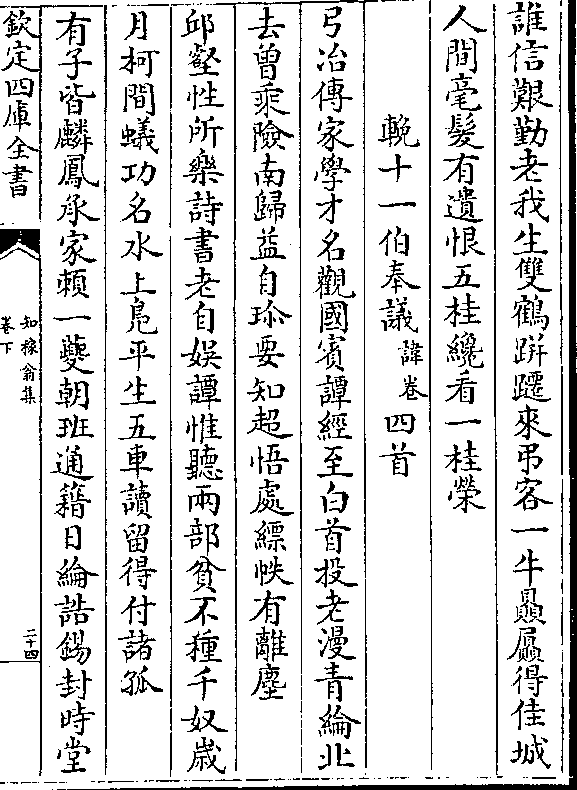 誰信艱勤老我生雙鶴跰𨇤來弔客一牛贔屭得佳城
人間毫髮有遺恨五桂纔看一桂榮
輓十一伯奉議諱卷四首
弓冶傳家學才名觀國賓譚經至白首投老漫青綸北
去曾乘險南歸益自珎要知超悟處縹帙有離塵
邱壑性所樂詩書老自娱譚惟聽兩部貧不種千奴歲
月柯間蟻功名水上鳬平生五車讀留得付諸孤
有子皆麟鳳承家頼一䕫朝班通籍日綸誥錫封時堂
欽定四庫全書
知稼翁集
卷下
二十四